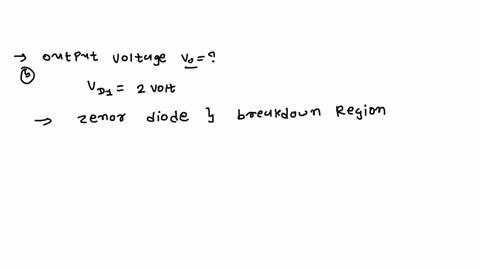 → output voltage Vo = ?
(b)
VD1 = 2 volt
→ zenor diode } breakdown Region